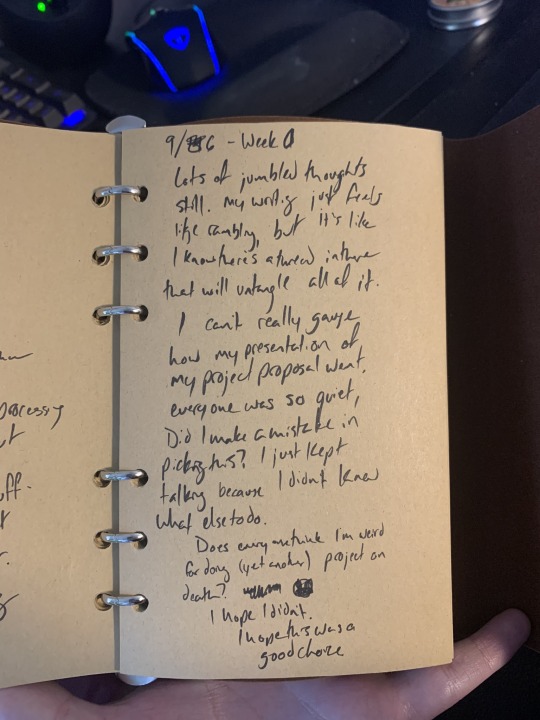 9/6 - Week 0
Lots of jumbled thoughts
still. My writing just feels
like rambling, but it's like
I know there's a thread in there
that will untangle all of it.
I can't really gauge
how my presentation of
my project proposal went.
everyone was so quiet,
Did I make a mistake in
picking this? I just kept
talking because I didn't know
what else to do.
Does everyone think I'm weird
for doing (yet another) project on
death?
I hope I didn't.
I hope this was a
good choice
processing